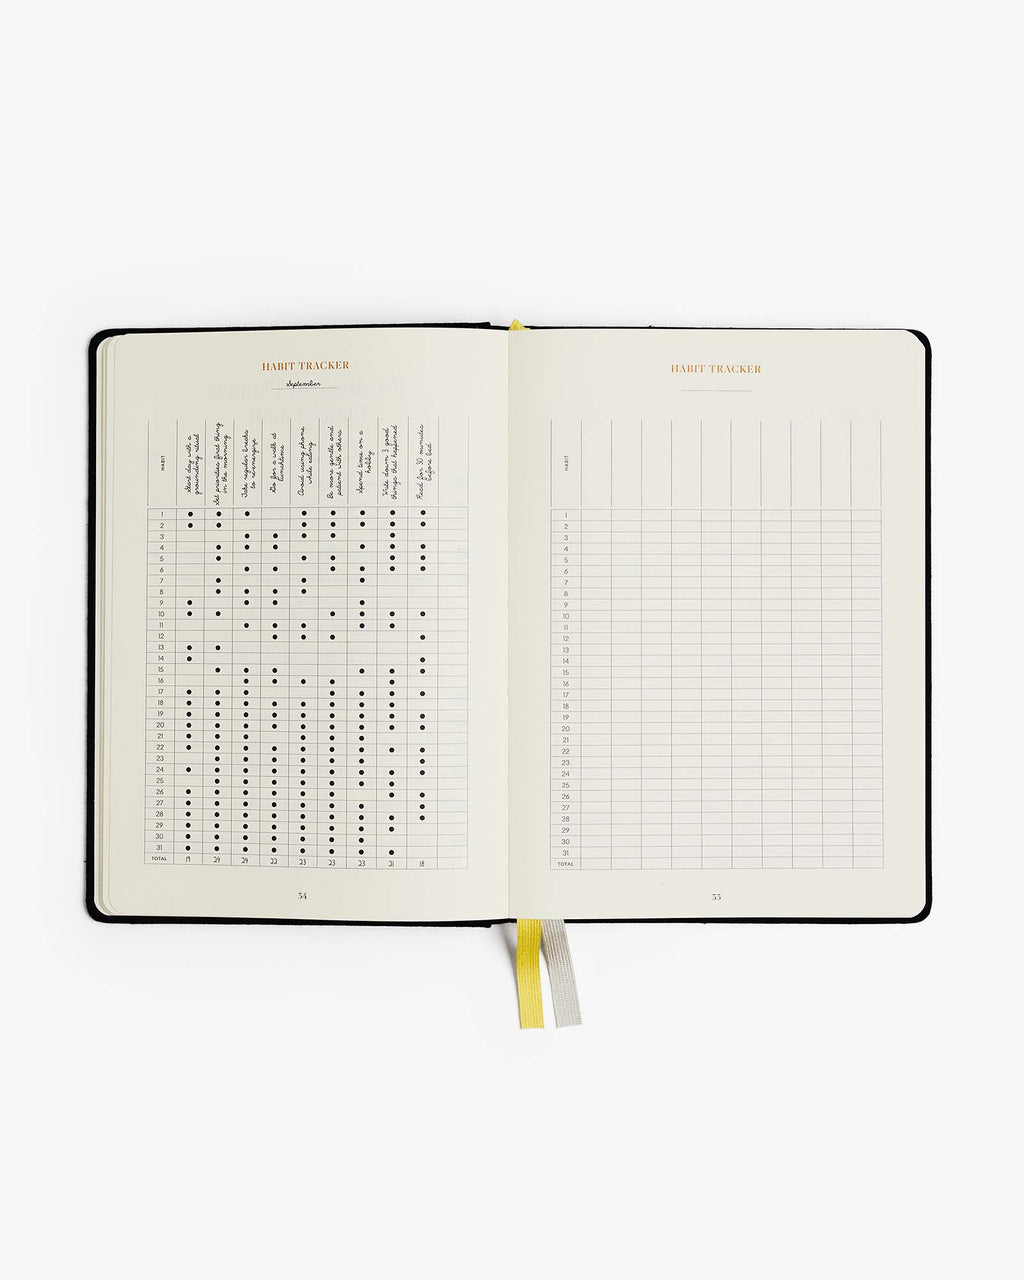 HABIT TRACKER
September
HABIT
Start day with a
grounding ritual
Set priorities first thing
in the morning
Take regular breaks
to re-energize
Go for a walk at
lunchtime
Avoid using phone
while eating
Be more gentle and
patient with others
Spend time on a
hobby
Write down 3 good
things that happened
Read for 30 minutes
before bed
1
2
3
4
5
6
7
8
9
10
11
12
13
14
15
16
17
18
19
20
21
22
23
24
25
26
27
28
29
30
31
TOTAL 19 24 24 22 23 23 23 21 18
34
HABIT TRACKER
HABIT
1
2
3
4
5
6
7
8
9
10
11
12
13
14
15
16
17
18
19
20
21
22
23
24
25
26
27
28
29
30
31
TOTAL
35